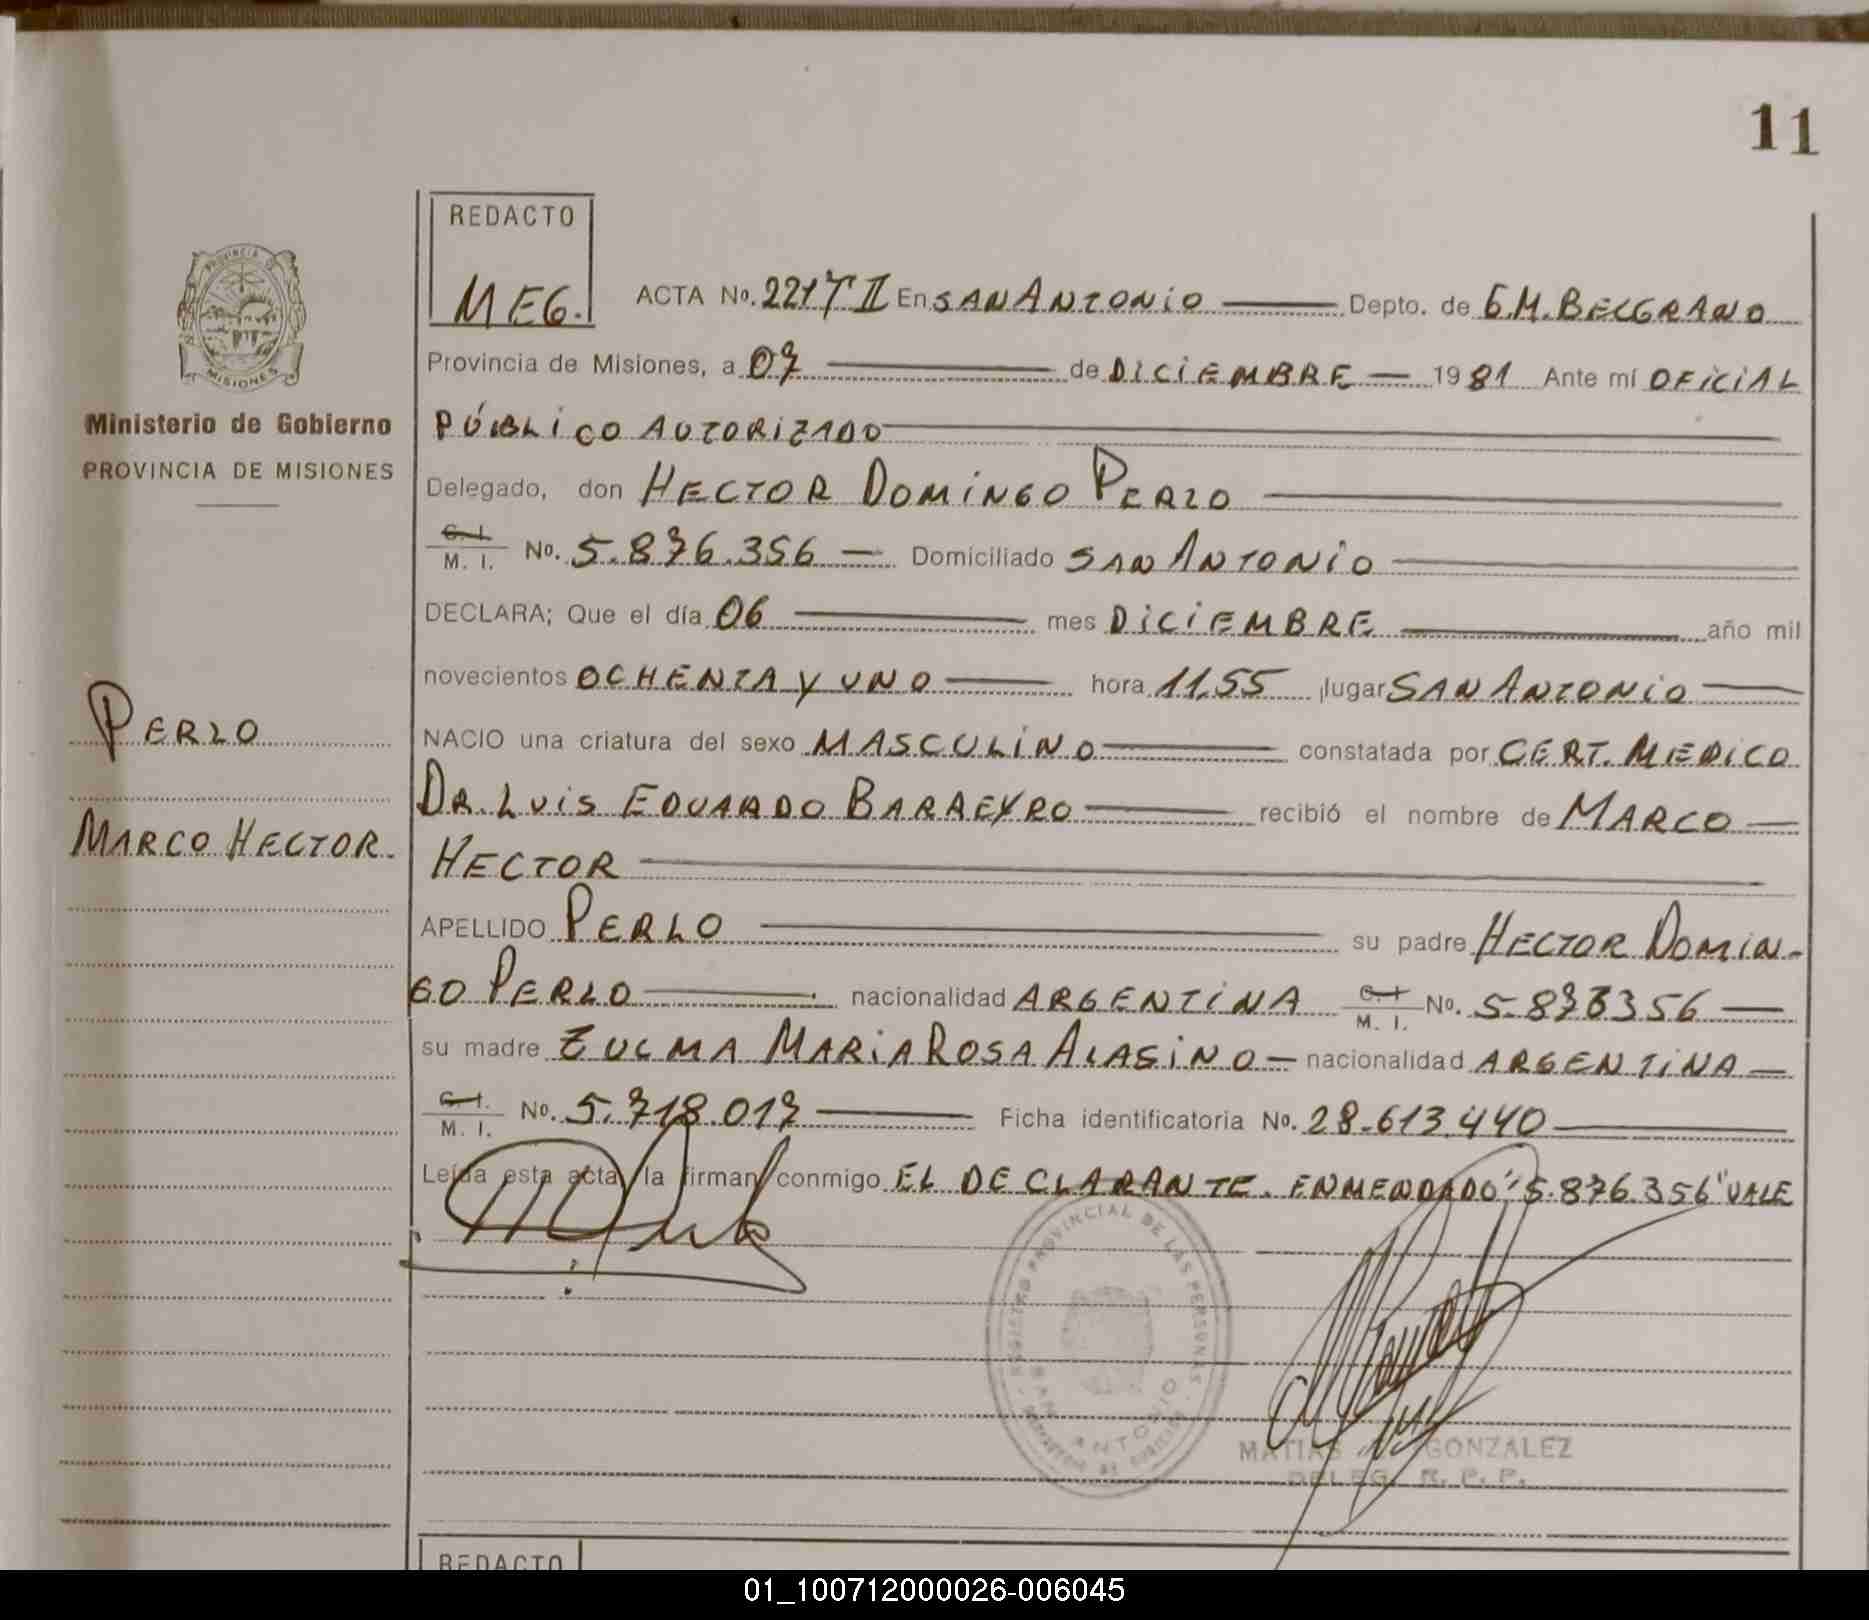 11
REDACTO
MEG.
ACTA No. 221 T II En SAN ANTONIO Depto. de G.M. BELGRANO
Provincia de Misiones, a 07 de DICIEMBRE 1981 Ante mí OFICIAL
PÚBLICO AUTORIZADO
Delegado, don HECTOR DOMINGO PERLO
C. I. M. I. No. 5.876.356 Domiciliado SAN ANTONIO
DECLARA; Que el día 06 mes DICIEMBRE año mil
novecientos OCHENTA Y UNO hora 11,55 lugar SAN ANTONIO
NACIO una criatura del sexo MASCULINO constatada por CERT. MEDICO
DR. LUIS EDUARDO BARREYRO recibió el nombre de MARCO
HECTOR
APELLIDO PERLO su padre HECTOR DOMIN-
GO PERLO nacionalidad ARGENTINA C. I. M. I. No. 5.876356
su madre ZULMA MARIA ROSA ALASINO nacionalidad ARGENTINA
C. I. M. I. No. 5.718.017 Ficha identificatoria No. 28.613.440
Leída esta acta, la firman conmigo EL DECLARANTE. ENMENDADO: "5.876.356" VALE
PROVINCIA DE MISIONES
Ministerio de Gobierno
PROVINCIA DE MISIONES
PERLO
MARCO HECTOR.
REGISTRO PROVINCIAL DE LAS PERSONAS
SAN ANTONIO
MATIAS GONZALEZ
DELEG. R. P. P.
REDACTO
01_100712000026-006045